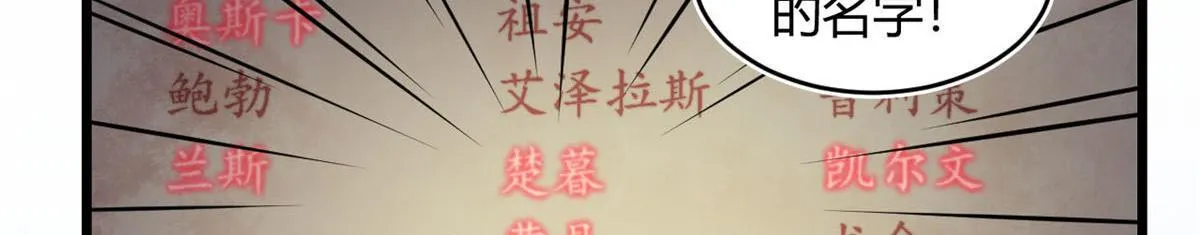 的名字！
奥斯卡 祖安
鲍勃 艾泽拉斯 普利策
兰斯 楚暮 凯尔文